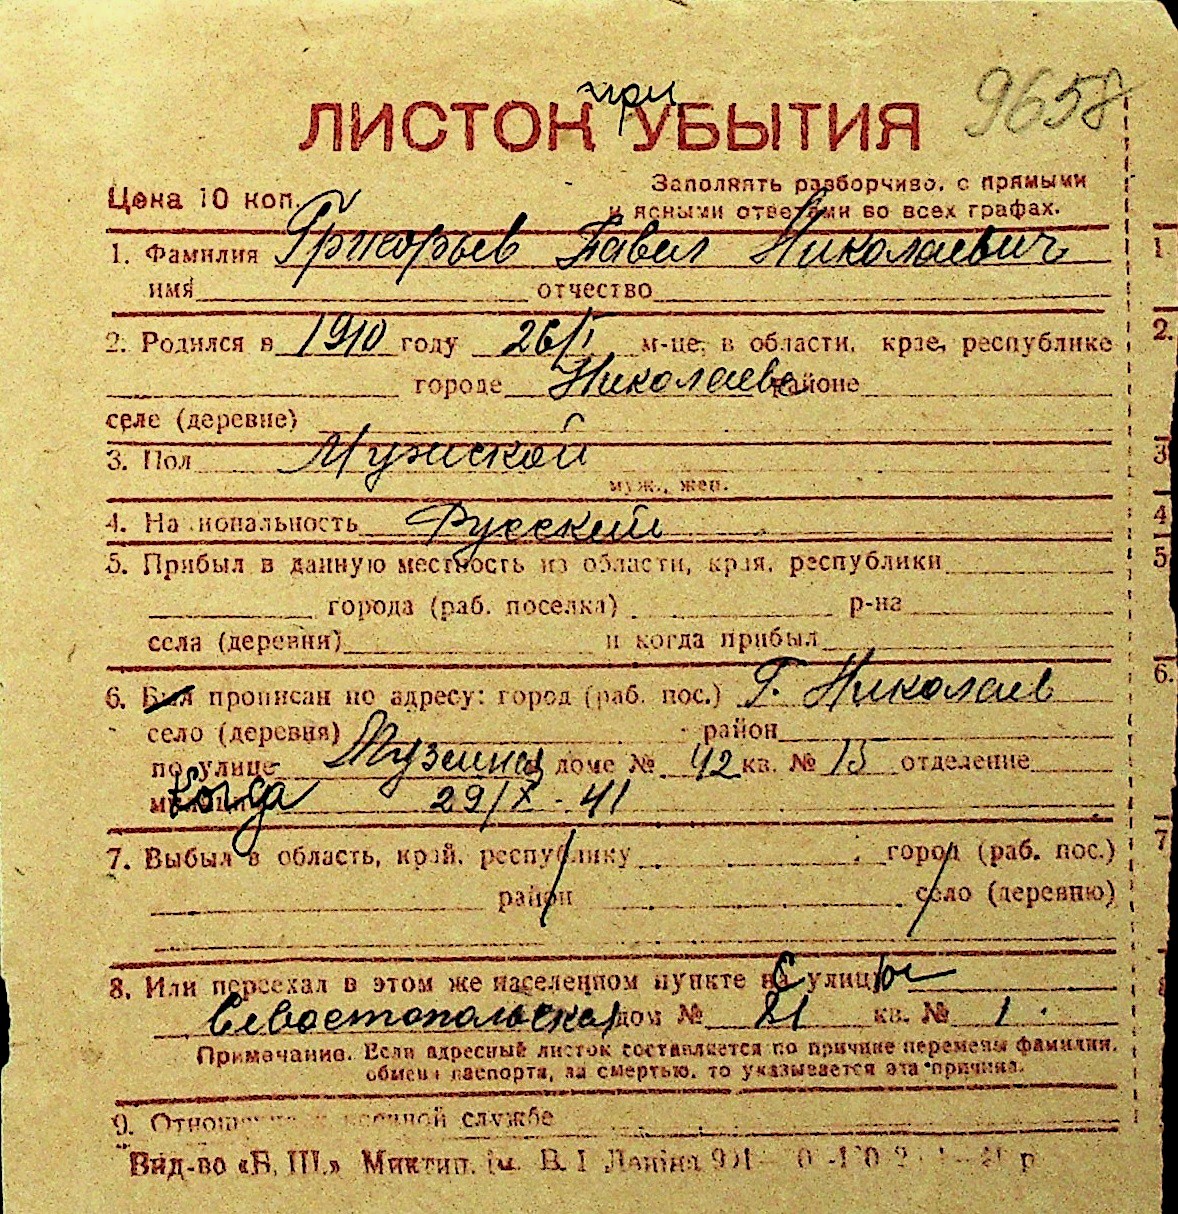 при
ЛИСТОК УБЫТИЯ 9658
Цена 10 коп. Заполнять разборчиво, с прямыми
и ясными ответами во всех графах.
1. Фамилия Григорьев Павел Николаевич
имя отчество
2. Родился в 1910 году 26/I м-це, в области, крае, республике
городе Николаеве районе
селе (деревне)
3. Пол Мужской
муж., жен.
4. Национальность Русский
5. Прибыл в данную местность из области, края, республики
города (раб. поселка) р-на
села (деревни) и когда прибыл
6. Был прописан по адресу: город (раб. пос.) Г. Николаев
село (деревня) район
по улице доме № 42 кв. № 15 отделение
Когда 29/X-41
7. Выбыл в область, край, республику город (раб. пос.)
район село (деревню)
8. Или переехал в этом же населенном пункте С улицы
Севастопольская дом № 81 кв. № 1.
Примечание. Если адресный листок составляется по причине перемены фамилии,
обмена паспорта, за смертью, то указывается эта причина.
9. Отношение к военной службе
Вид-во «Б. Ш.» Миктип. ім. В. І Леніна
1
2.
3
4
5
6.
7